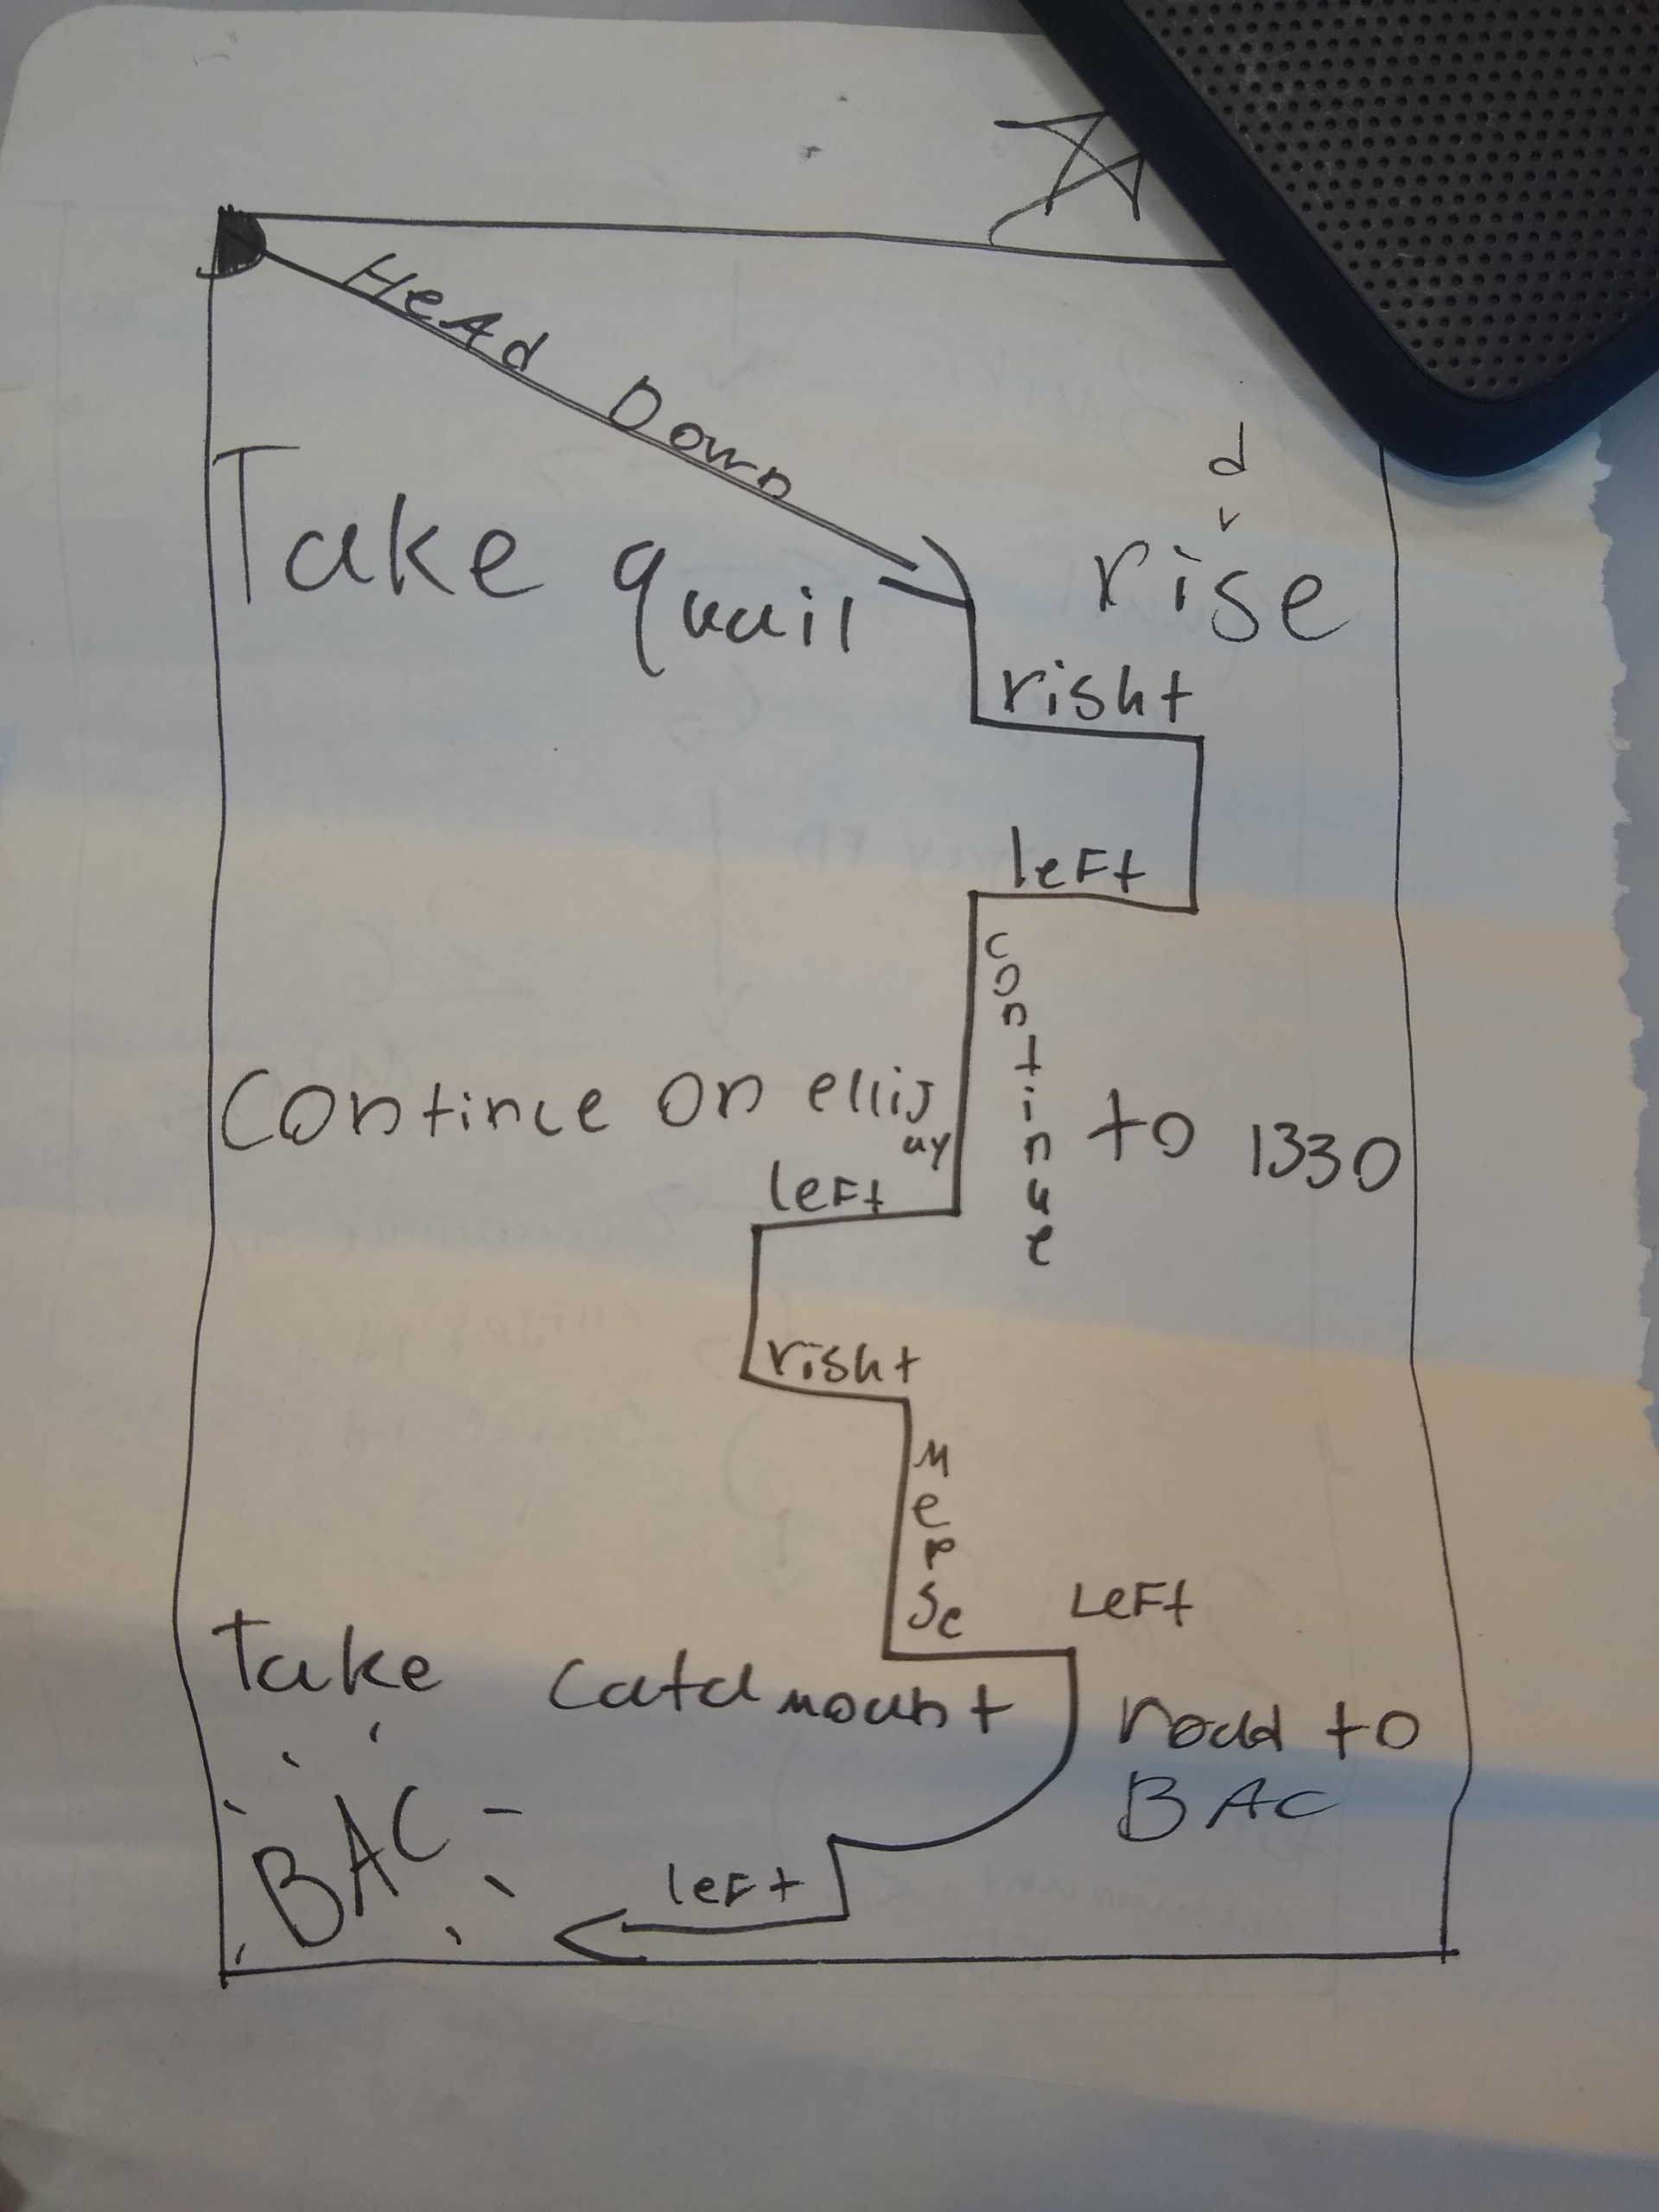 Head Down
dr
Take quail rise
risht
left
continue
Contince on ellijay to 1330
left
risht
Merse
Left
Take catamount road to
BAC
BAC
left